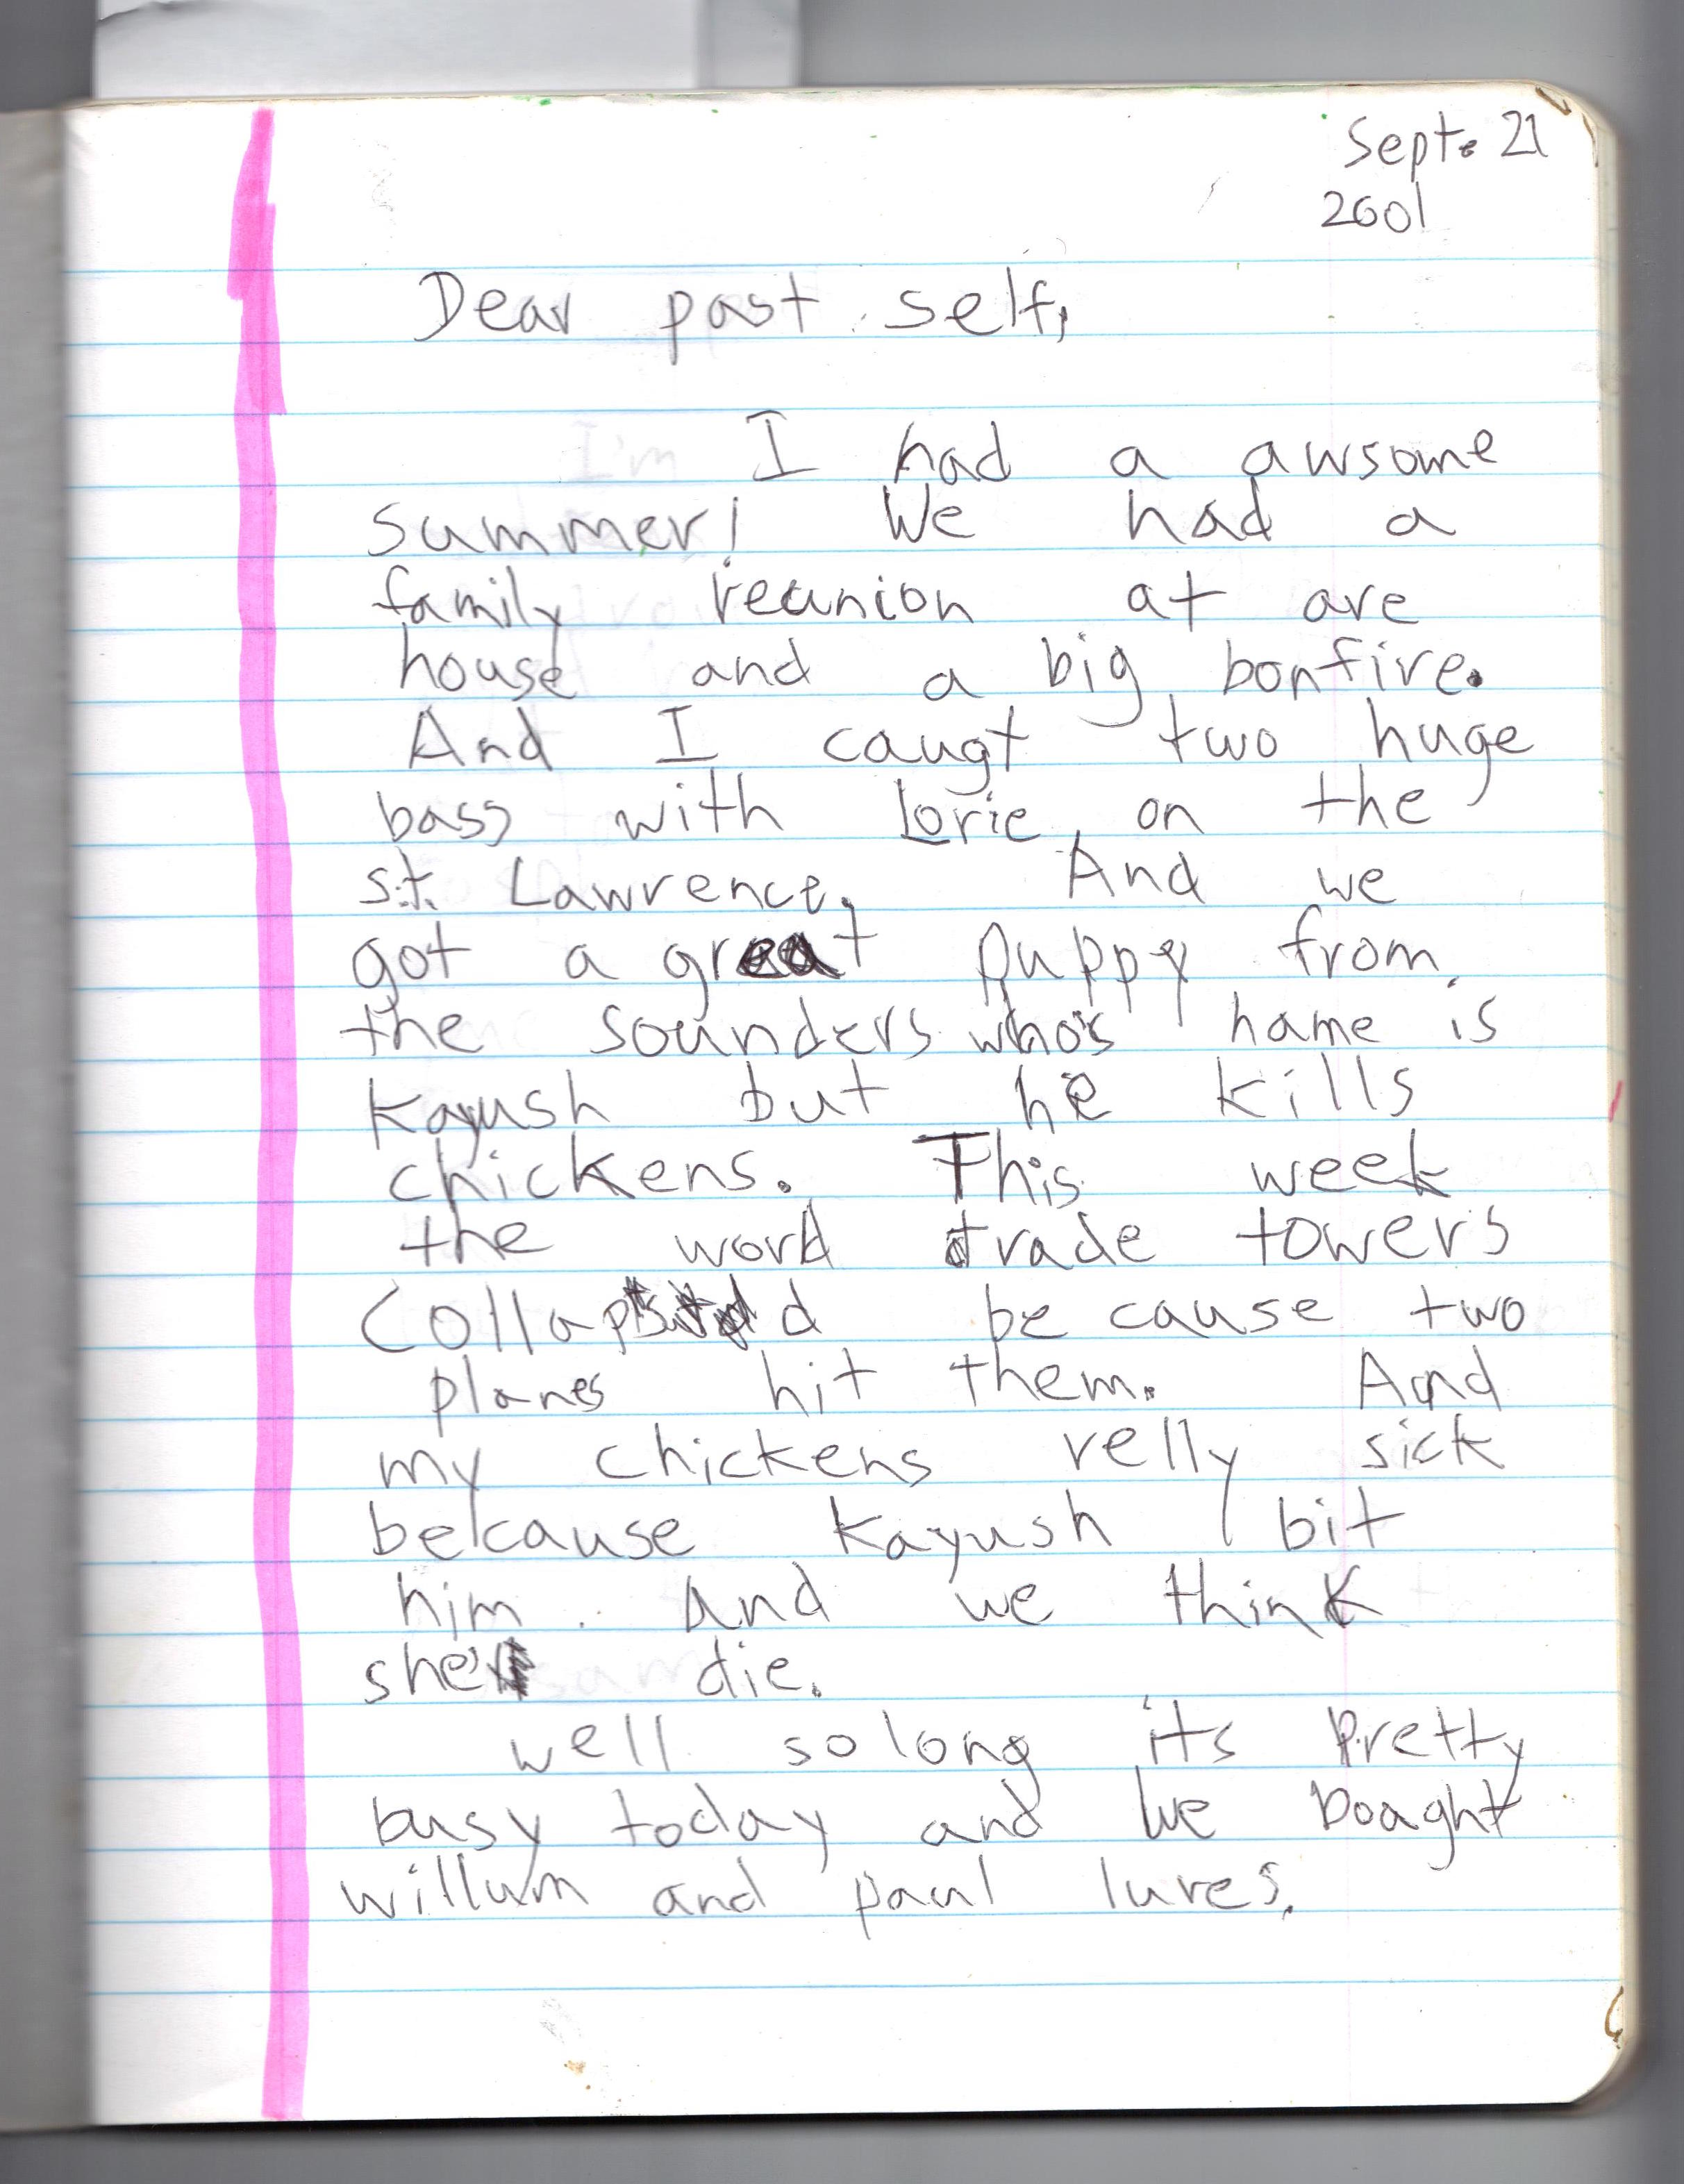 Sept. 21
2001
Dear past self,
I had a awsome
summer! We had a
family reunion at are
house and a big bonfire.
And I caugt two huge
bass with Lorie, on the
st. Lawrence. And we
got a great puppy from
the sounders who's name is
Kayush but he kills
chickens. This week
the world trade towers
because two
planes hit them. And
my chickens relly sick
because Kayush bit
him and we think
die.
well so long its pretty
busy today and we boaght
willum and paul lures.